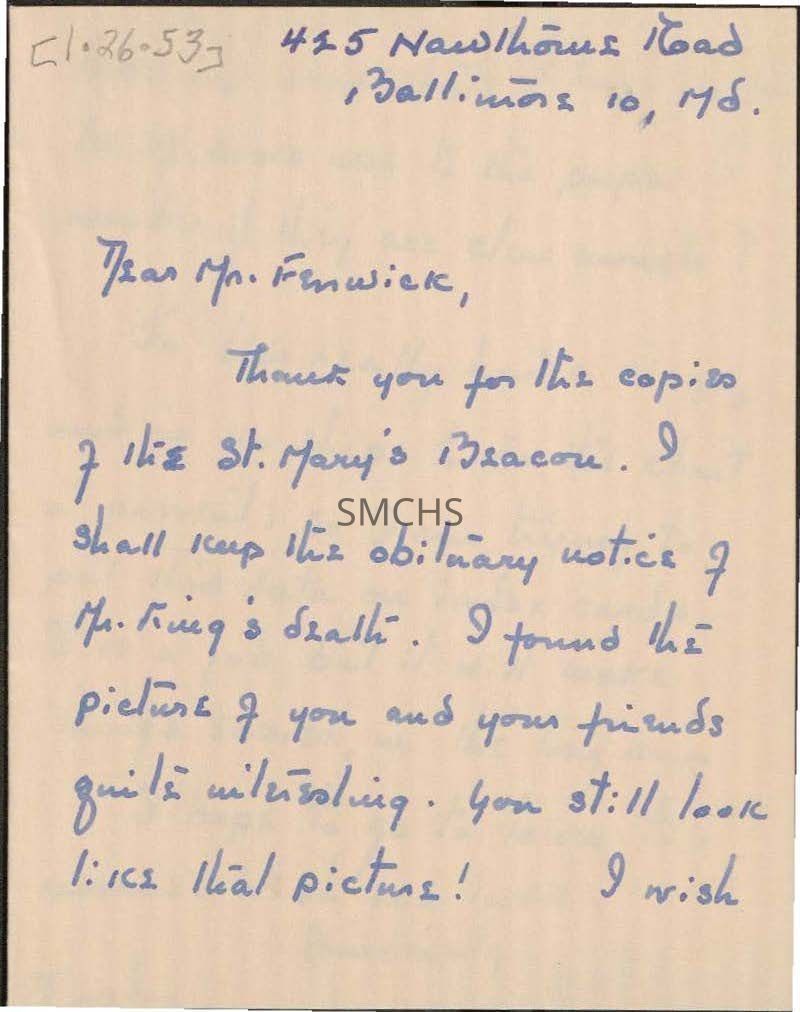 [1.26.53]
425 Hawthorne Road
Baltimore 10, Md.
Dear Mr. Fenwick,
Thank you for the copies
of the St. Mary's Beacon. I
SMCHS
shall keep the obituary notice of
Mr. King's death. I found the
picture of you and your friends
quite interesting. You still look
like that picture! I wish